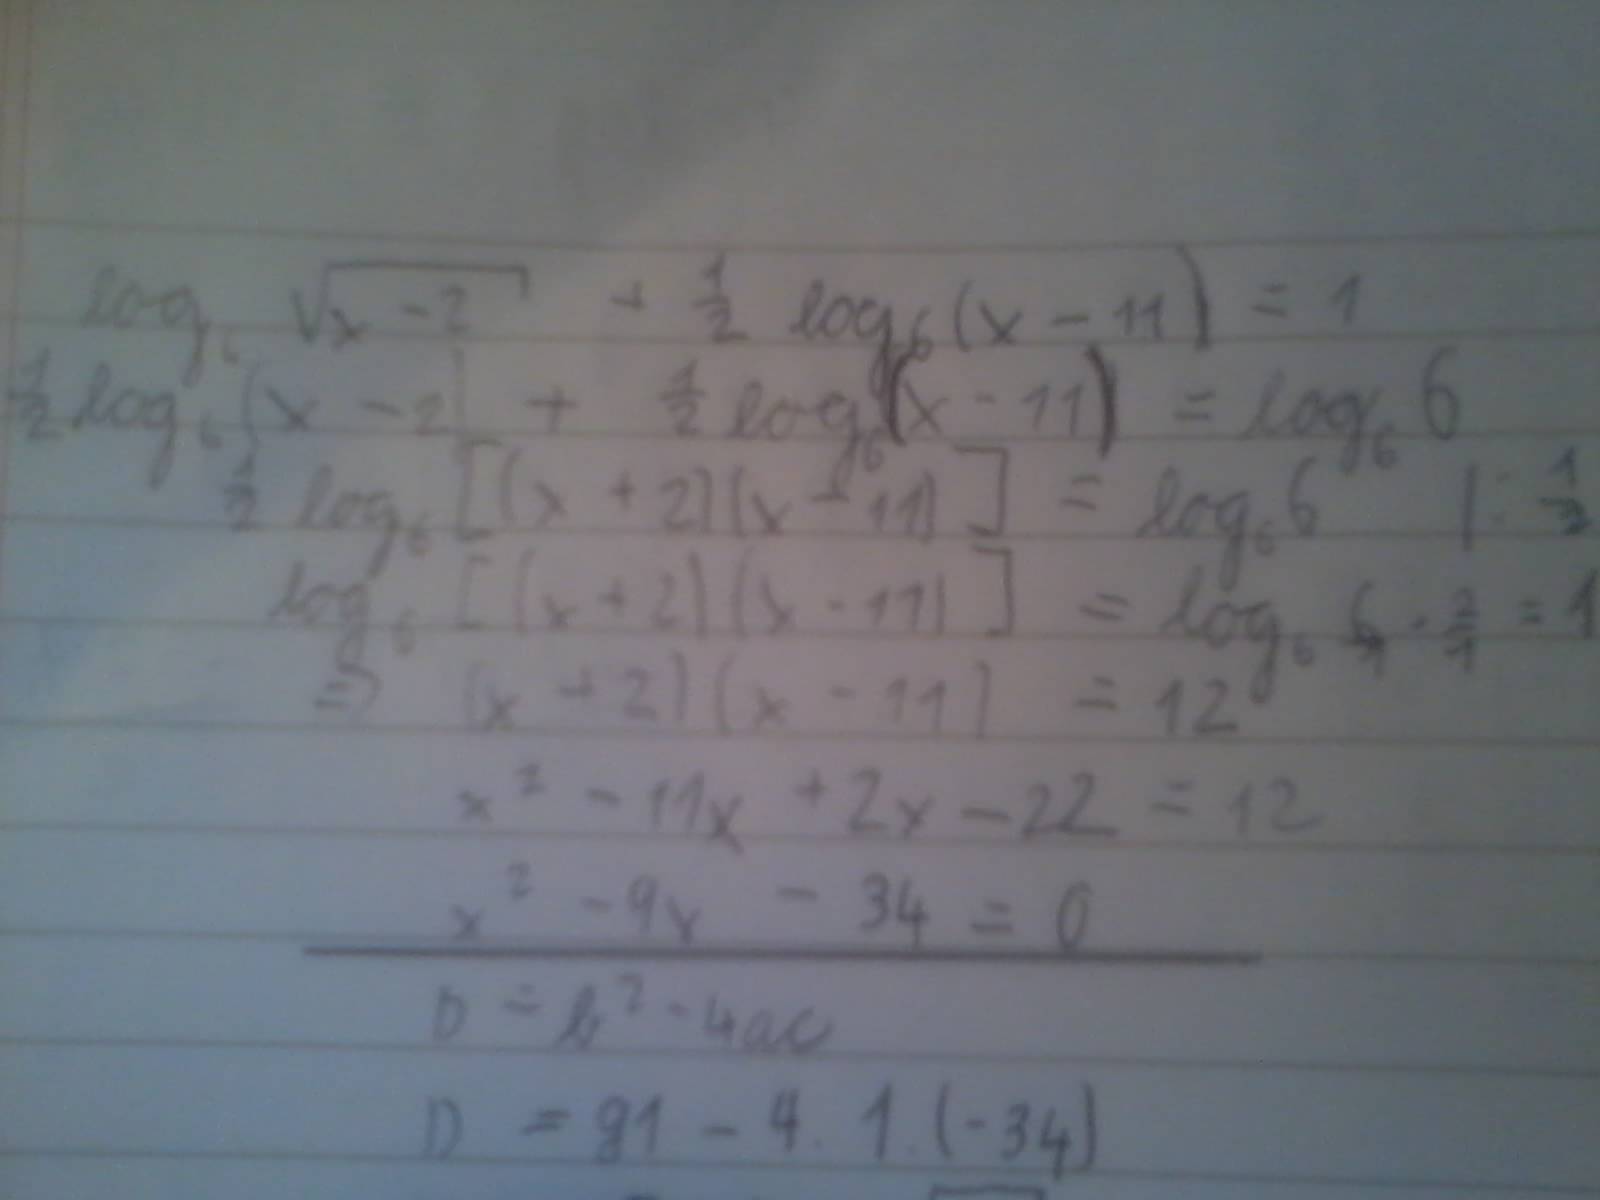 log₆ √(x - 2) + 1/2 log₆(x - 11) = 1
1/2 log₆(x - 2) + 1/2 log₆(x - 11) = log₆ 6
1/2 log₆ [(x + 2)(x - 11)] = log₆ 6 |: 1/2
log₆ [(x + 2)(x - 11)] = log₆ 6/1 · 2/1 = 1
=> (x + 2)(x - 11) = 12
x² - 11x + 2x - 22 = 12
x² - 9x - 34 = 0
D = b² - 4ac
D = 81 - 4 . 1 . (-34)